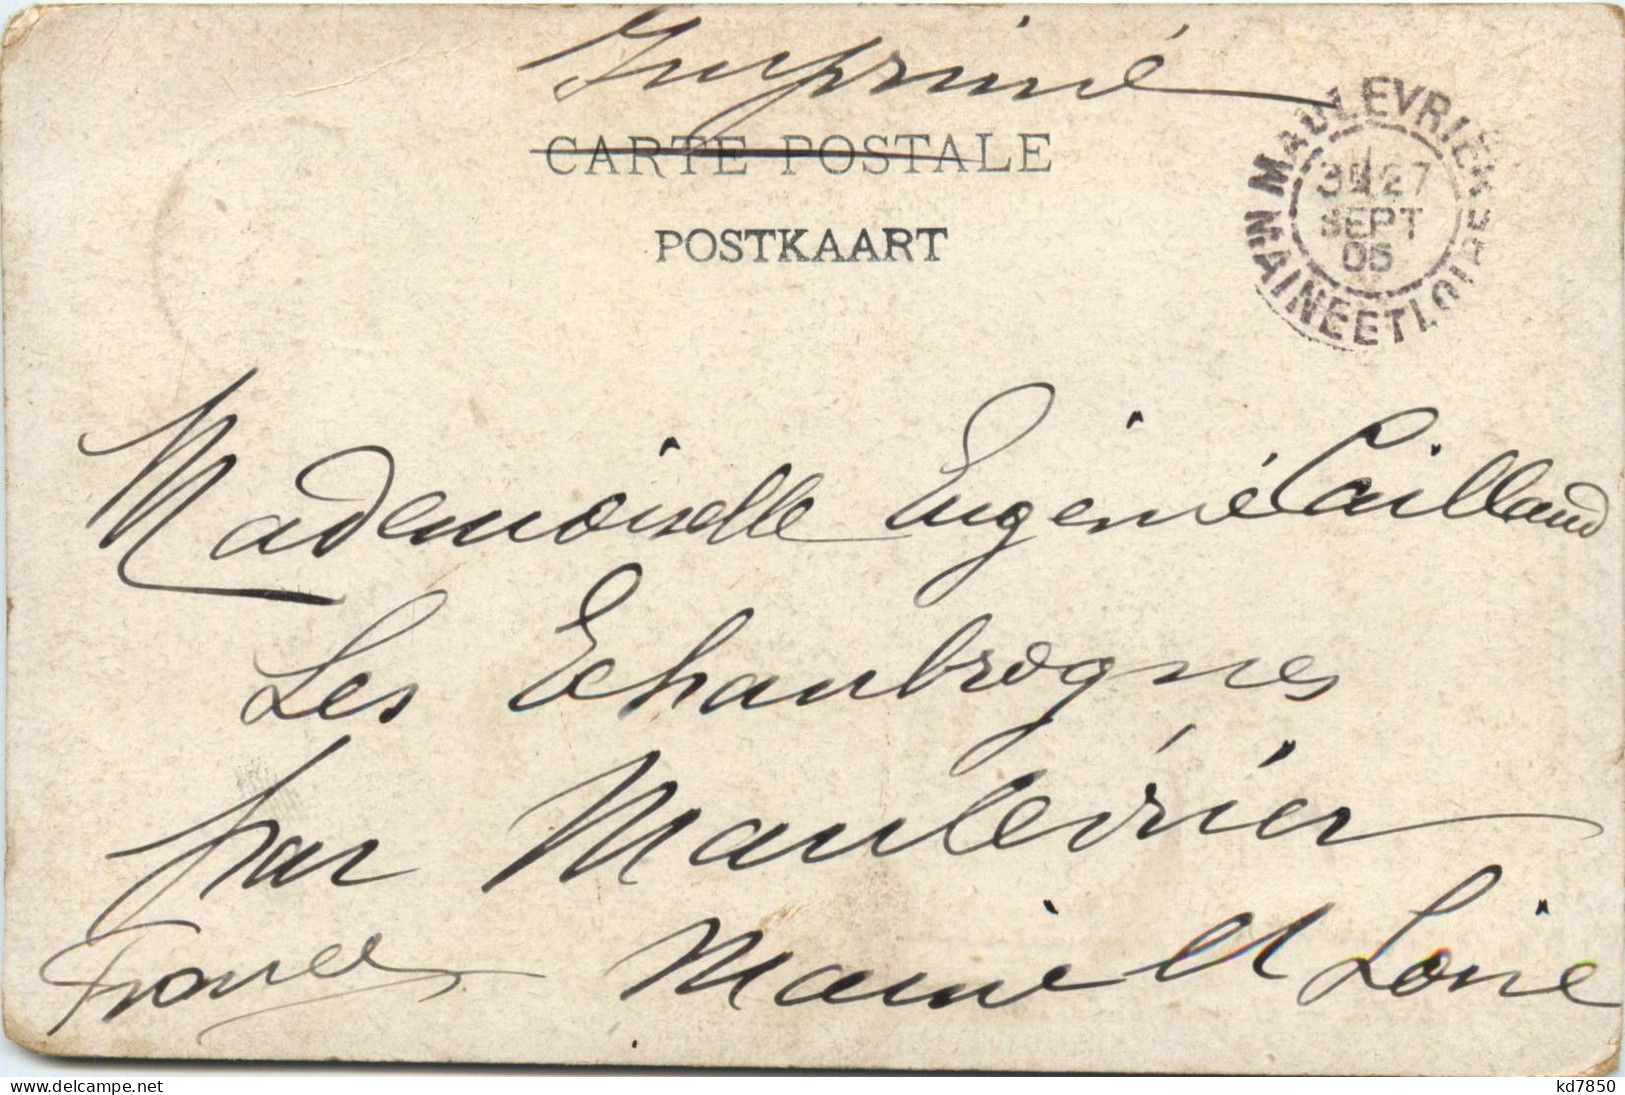 Imprimé
CARTE POSTALE
POSTKAART
MAULEVRIER
3E 27
SEPT
05
MAINE ET LOIRE
Mademoiselle Eugénie Cailland
Les Echaubrognes
par Maulévrier
Maine et Loire
France
www.delcampe.net
kd7850